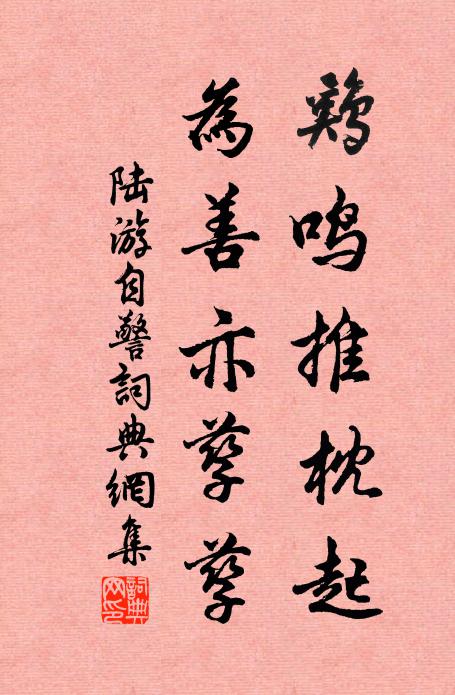 鷄鳴推枕起
為善亦孳孳
陸游自警詞典網集
詞典網印